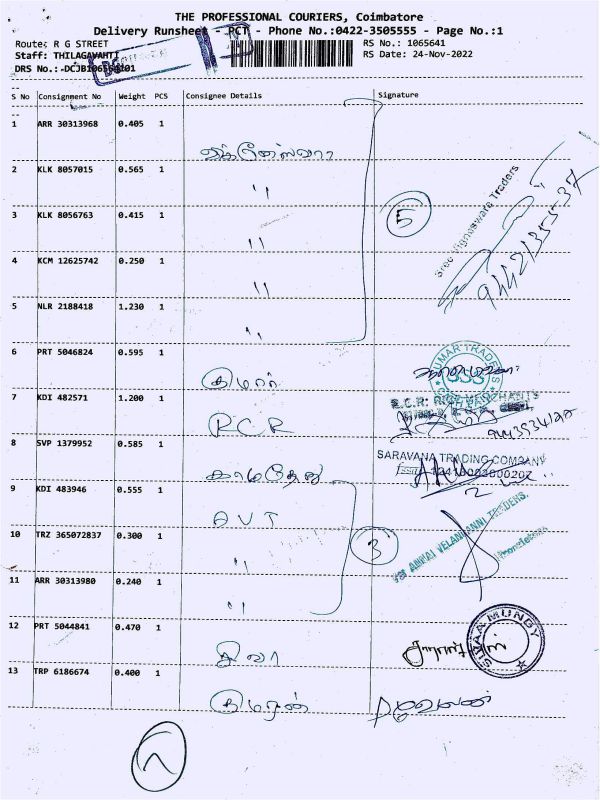 THE PROFESSIONAL COURIERS, Coimbatore
Delivery Runsheet - PCT - Phone No.:0422-3505555 - Page No.:1
Route: R G STREET
RS No.: 1065641
Staff: THILAGAVAHTI
RS Date: 24-Nov-2022
DRS No.:-DCJB106564101
S No Consignment No Weight PCS Consignee Details Signature
1 ARR 30313968 0.405 1
2 KLK 8057015 0.565 1
"
5
Sree Vigneswara Traders
3 KLK 8056763 0.415 1
"
4 KCM 12625742 0.250 1
"
5 NLR 2188418 1.230 1
"
6 PRT 5046824 0.595 1
குமார்
KUMAR TRADERS
7 KDI 482571 1.200 1
R.C.R. RICE MERCHANTS
RCR
8 SVP 1379952 0.585 1
SARAVANA TRADING COMPANY
காமதேனு
9 KDI 483946 0.555 1
AVT
For ANNAI VELANKANNI TRADERS,
Proprietrix
10 TRZ 365072837 0.300 1
"
3
11 ARR 30313980 0.240 1
"
12 PRT 5044841 0.470 1
சிவா
SIVAA MUNDY
13 TRP 6186674 0.400 1
குமரன்